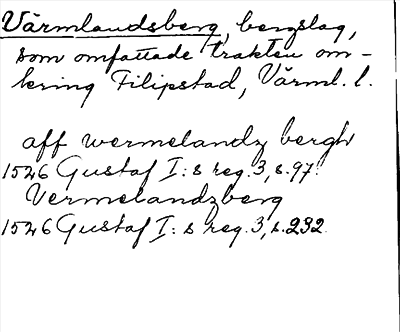 Värmlandsberg, bergslag,
som omfattade trakten om-
kring Filipstad, Värml. l.
aff wermelandz bergh
1526 Gustaf I:s reg. 3, s. 97.
Vermelandzberg
1526 Gustaf I:s reg. 3, s. 232.